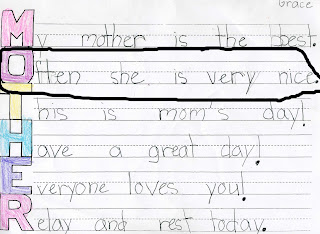 Grace
My mother is the best.
Often she is very nice.
This is mom's day!
Have a great day!
Everyone loves you!
Relay and rest today.